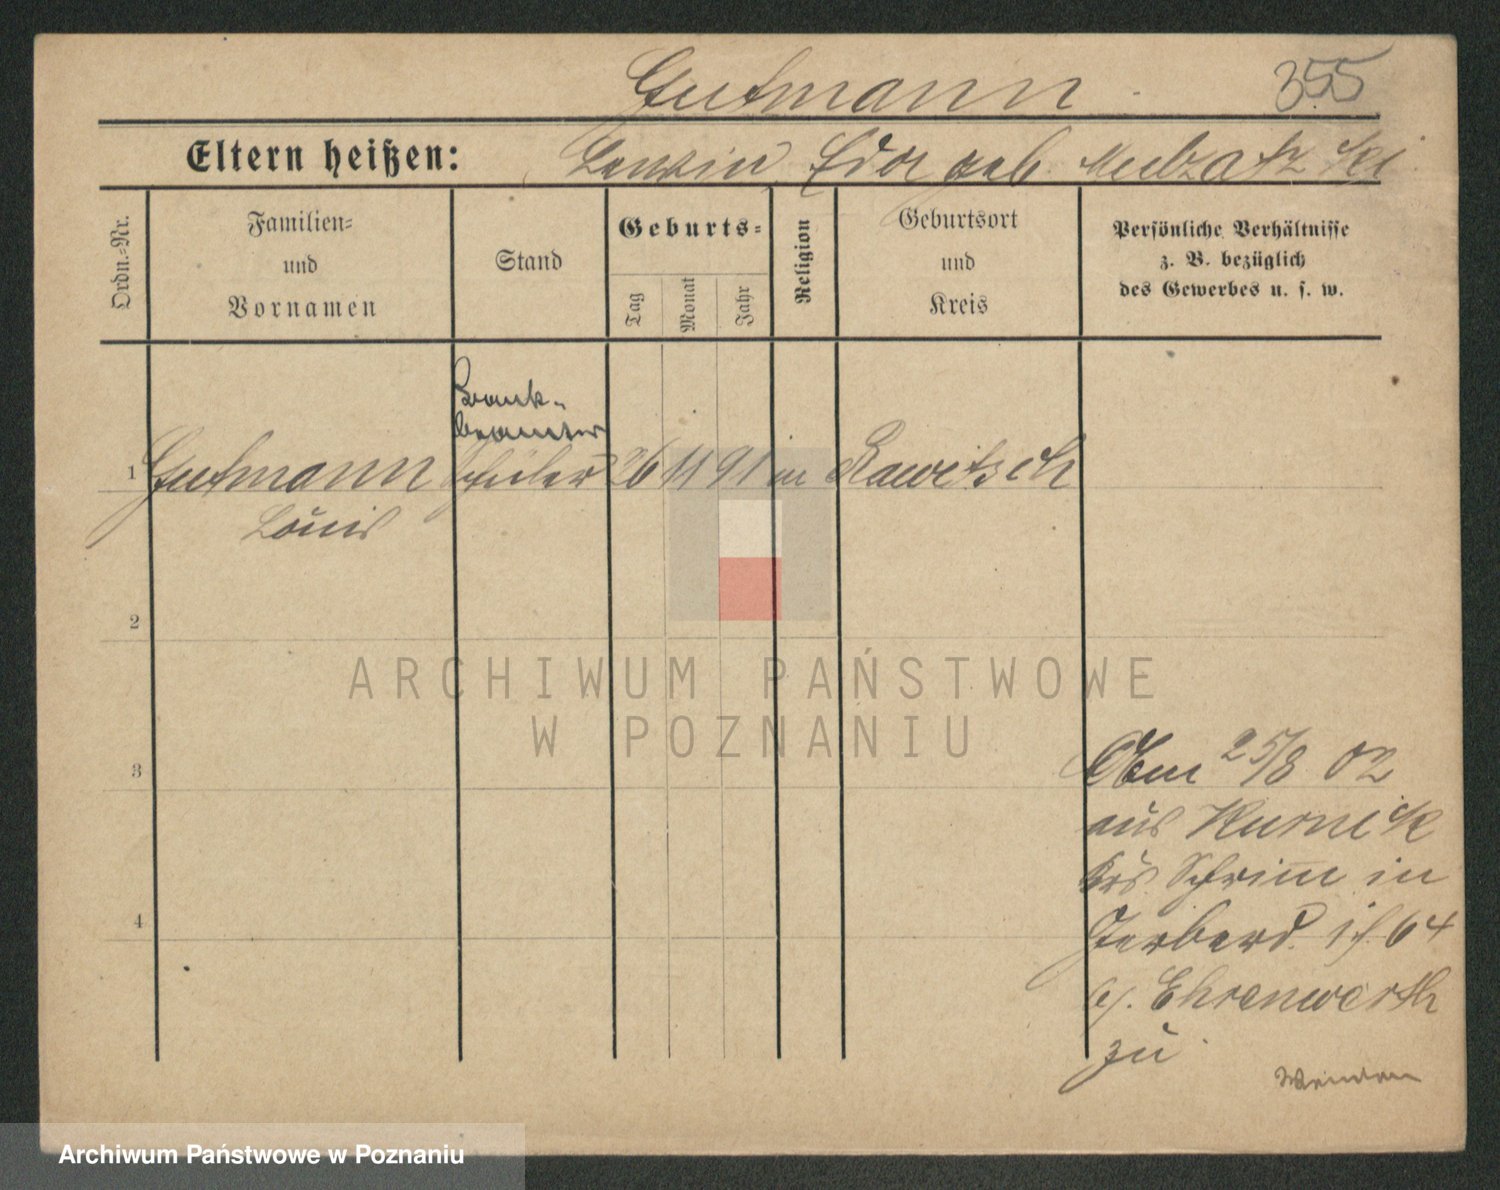 Gutmann 355
Eltern heißen: Lewin, Eda geb.
Ordn.-Nr.
Familien-
und
Vornamen
Stand
Geburts-
Tag
Monat
Jahr
Religion
Geburtsort
und
Kreis
Persönliche Verhältnisse
z. B. bezüglich
des Gewerbes u. s. w.
Bank-
beamter
1 Gutmann Schüler 26 11 91 in Rawitsch
Louis
2
3
4
25/8 02
aus Kurnik
Krs. Schrimm in
64
b/. Ehrenwerth
zu
Wenden
ARCHIWUM PAŃSTWOWE
W POZNANIU
Archiwum Państwowe w Poznaniu